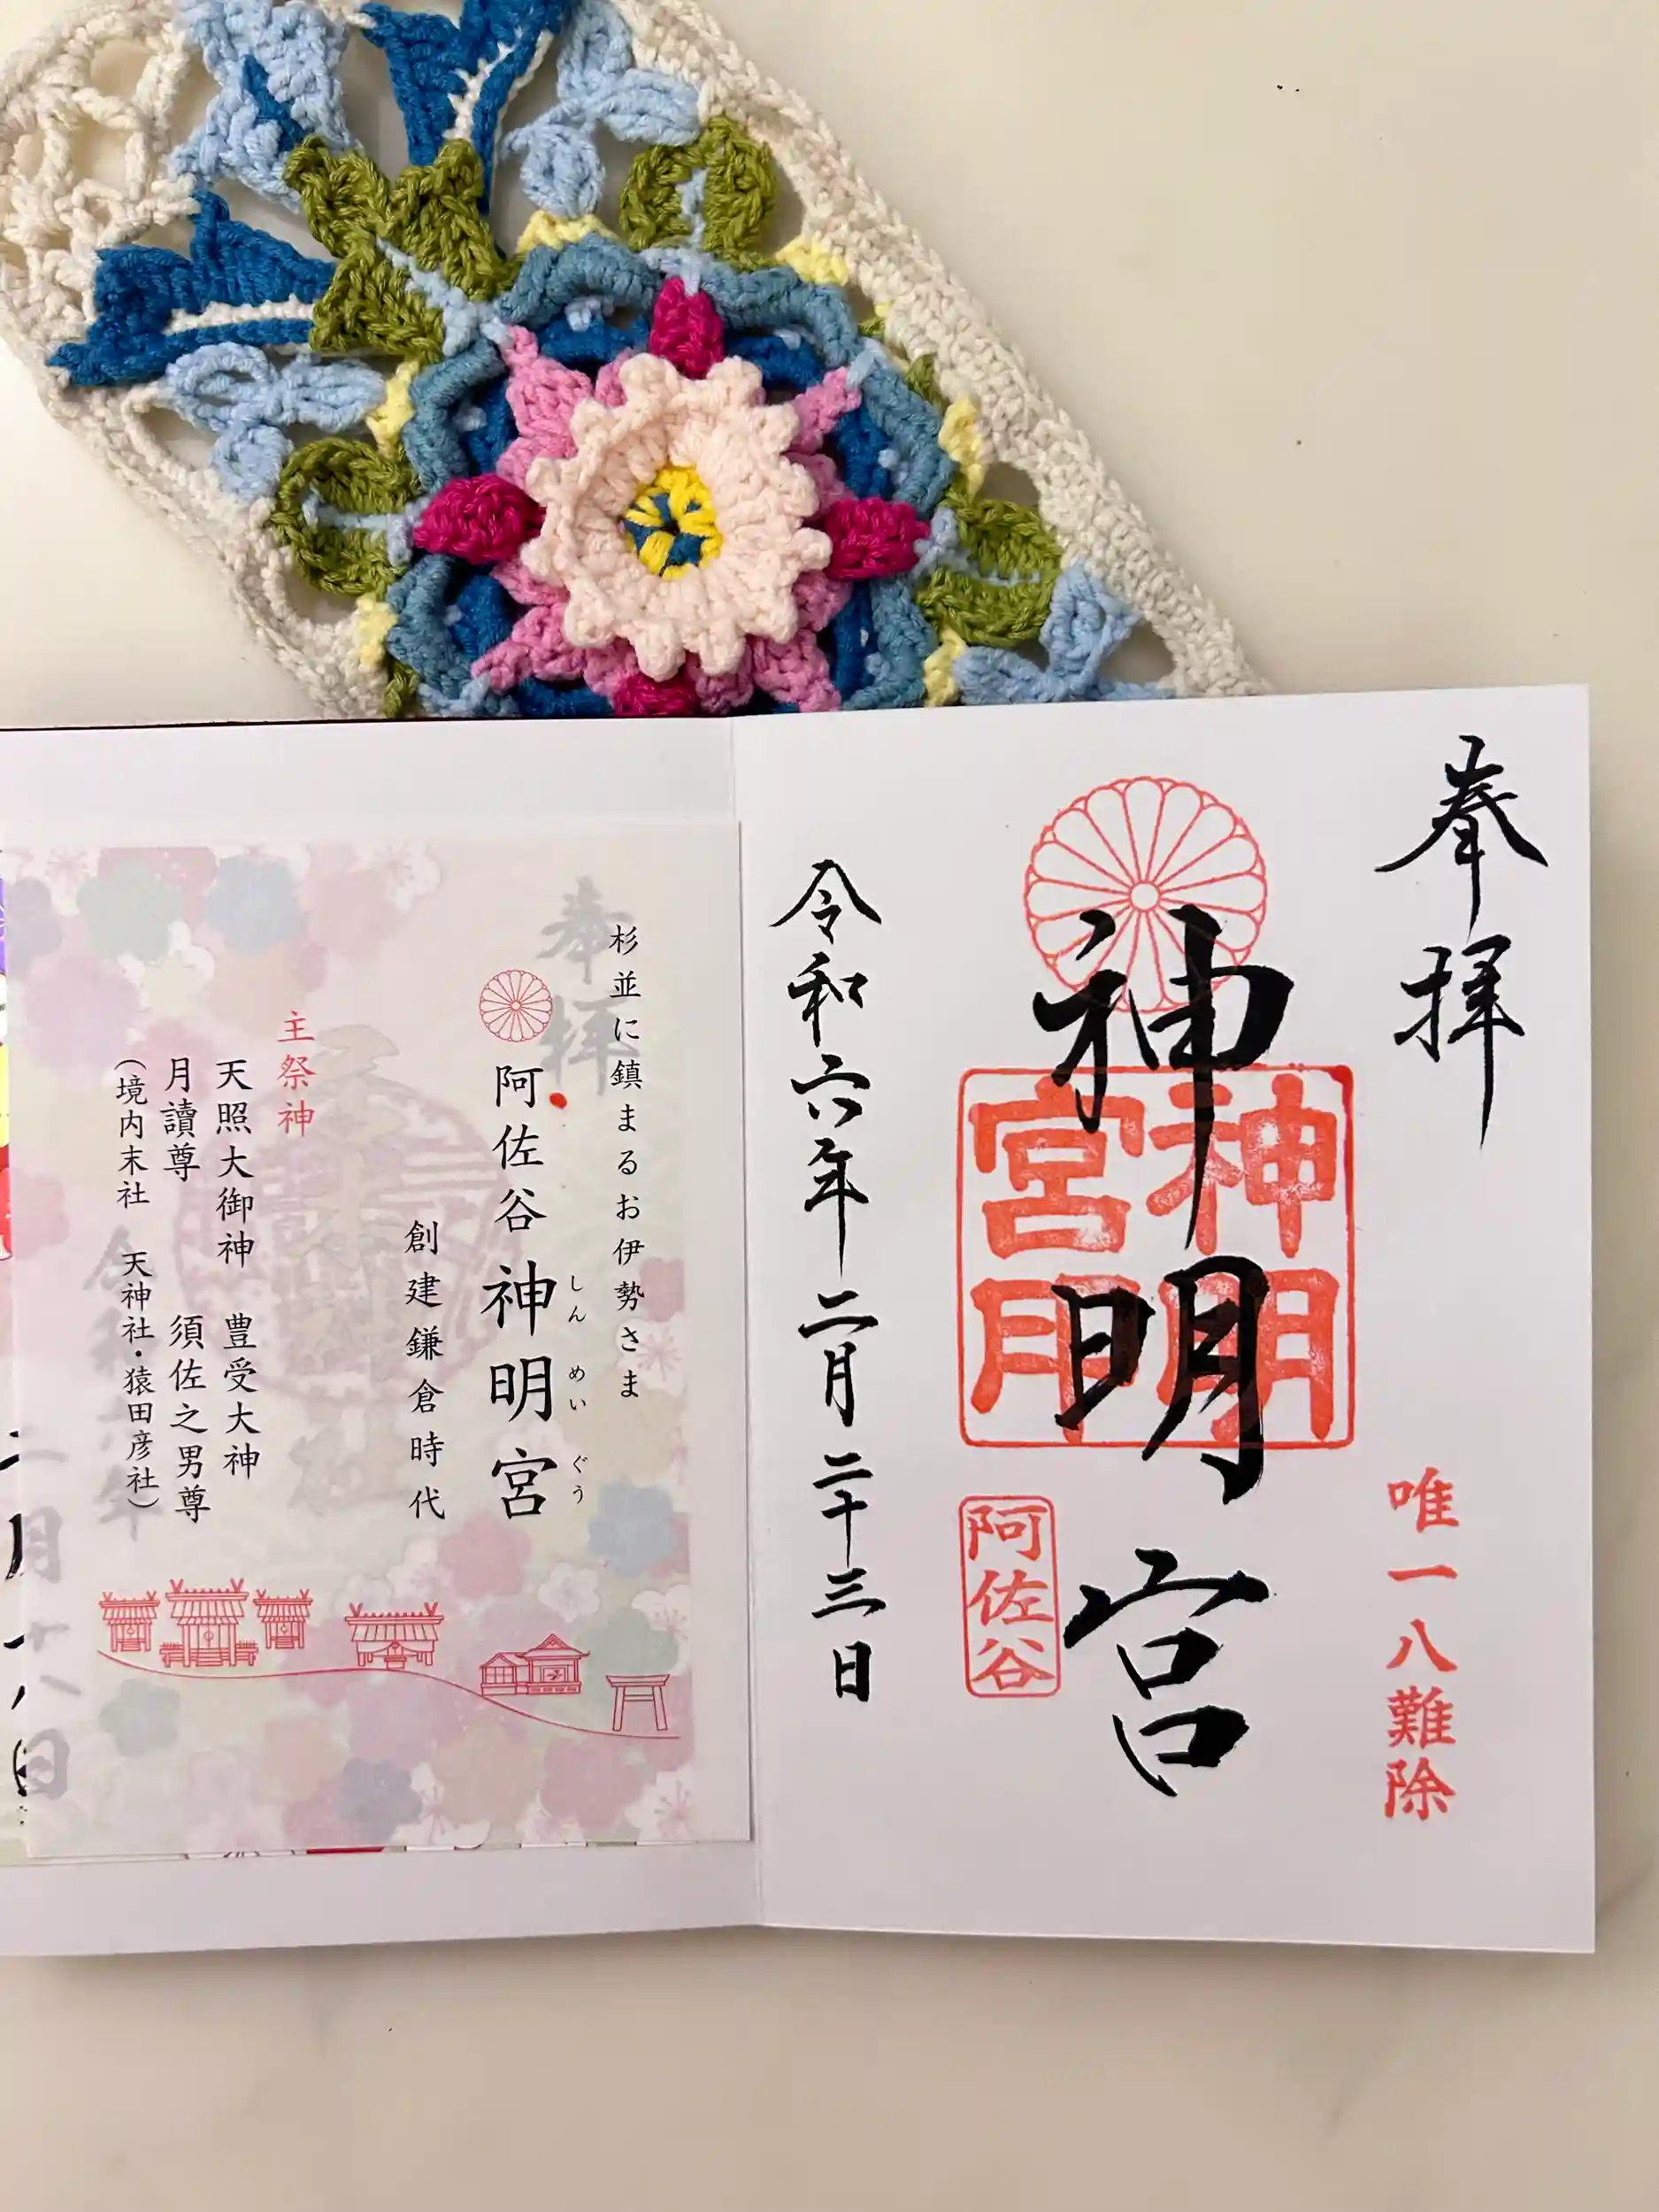 奉拝
唯一八難除
神明宮
神明宮印
阿佐谷
令和六年二月二十三日
杉並に鎮まるお伊勢さま
阿佐谷神明宮
しんめいぐう
創建鎌倉時代
主祭神
天照大御神 豊受大神
月讀尊 須佐之男尊
(境内末社 天神社・猿田彦社)
奉拝
二月十八日